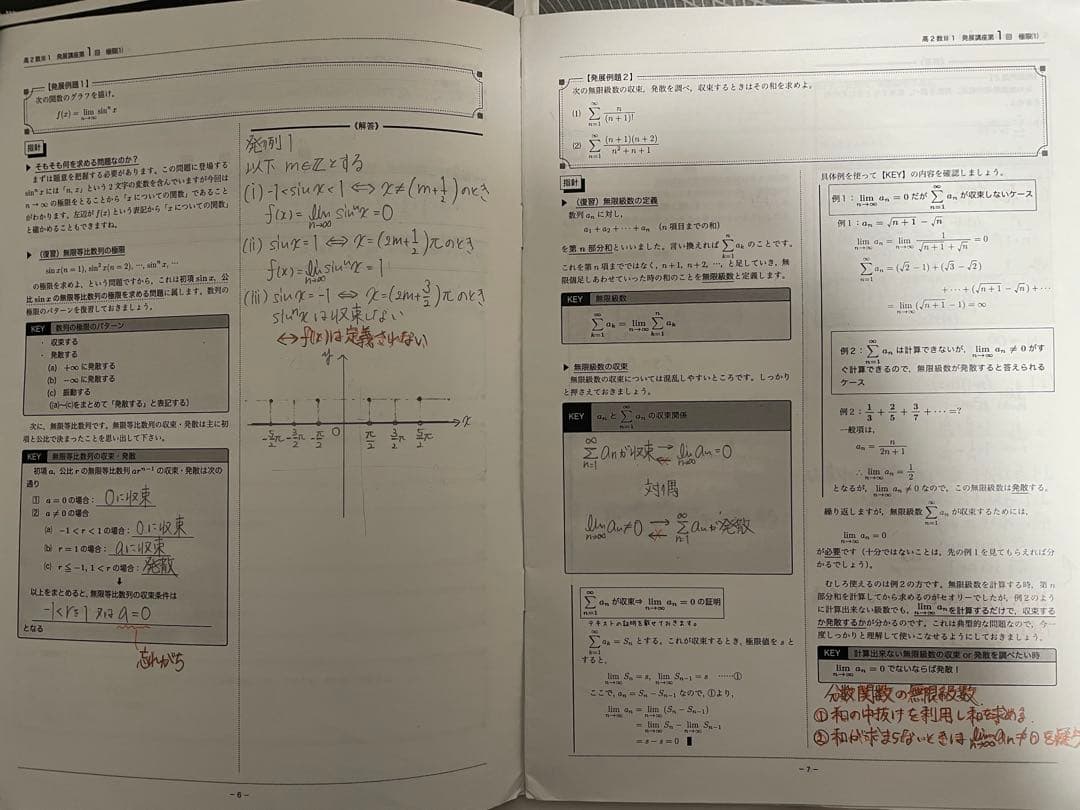 高2数Ⅲ1 発展講座第1回 極限(1)
【発展例題1】
次の関数のグラフを描け。
f(x) = lim_{n→∞} sin^n x
指針
▶ そもそも何を求める問題なのか?
まずは題意を把握する必要があります。この問題に登場する
sin^n x には「n, x」という2文字の変数を含んでいますが今回は
n→∞の極限をとることから「xについての関数」であること
がわかります。左辺が f(x) という表記から「xについての関数」
と確かめることもできますね。
▶ (復習) 無限等比数列の極限
sin x(n=1), sin² x(n=2), …, sin^n x, …
の極限を求めよ、という問題ですから、これは初項 sin x, 公
比 sin x の無限等比数列の極限を求める問題に属します。数列の
極限のパターンを復習しておきましょう。
KEY 数列の極限のパターン
・ 収束する
・ 発散する
(a) +∞に発散する
(b) -∞に発散する
(c) 振動する
((a)~(c)をまとめて「発散する」と表記する)
次に、無限等比数列です。無限等比数列の収束・発散は主に初
項と公比で決まったことを思い出して下さい。
KEY 無限等比数列の収束・発散
初項 a, 公比 r の無限等比数列 ar^{n-1} の収束・発散は次の
通り
① a=0の場合: 0に収束
② a≠0の場合:
(a) -1<r<1の場合: 0に収束
(b) r=1の場合: aに収束
(c) r≦-1, 1<r の場合: 発散
↓
以上をまとめると、無限等比数列の収束条件は
-1<r≦1 又は a=0
となる
忘れがち
《解答》
発例1
以下 m∈Zとする
(i) -1<sinx<1 ⇔ x≠(m+1/2)のとき
f(x)=lim_{n→∞} sin^n x=0
(ii) sinx=1 ⇔ x=(2m+1/2)πのとき
f(x)=lim_{n→∞} sin^n x=1
(iii) sinx=-1 ⇔ x=(2m+3/2)πのとき
sin^n xは収束しない
⇔ f(x)は定義されない
y
x
-5/2π -3/2π -π/2 0 π/2 3/2π 5/2π
-6-
高2数Ⅲ1 発展講座第1回 極限(1)
【発展例題2】
次の無限級数の収束、発散を調べ、収束するときはその和を求めよ。
(1) Σ_{n=1}^{∞} n/(n+1)!
(2) Σ_{n=1}^{∞} (n+1)(n+2)/(n²+n+1)
指針
▶ (復習) 無限級数の定義
数列 a_n に対し、
a₁+a₂+…+a_n (n項目までの和)
を第n部分和といいました。言い換えれば Σ_{k=1}^{n} a_k のことです。
これを第n項まてではなく、n+1, n+2, …, と足していき、無
限個足しあわせていった時の和のことを無限級数と定義します。
KEY 無限級数
Σ_{k=1}^{∞} a_k = lim_{n→∞} Σ_{k=1}^{n} a_k
▶ 無限級数の収束
無限級数の収束については混乱しやすいところです。しっかり
と押さえておきましょう。
KEY a_n と Σ_{n=1}^{∞} a_n の収束関係
Σ_{n=1}^{∞} a_nが収束 ⇄ lim_{n→∞} a_n=0
×
対偶
lim_{n→∞} a_n≠0 ⇄ Σ_{n=1}^{∞} a_nが発散
×
Σ_{n=1}^{∞} a_n が収束⇒ lim_{n→∞} a_n=0の証明
テキストの証明を載せておきます。
Σ_{k=1}^{∞} a_k = S_n とする。これが収束するとき、極限値を s と
すると、
lim_{n→∞} S_n = s, lim_{n→∞} S_{n-1} = s ……①
ここで、a_n = S_n - S_{n-1} なので、①より、
lim_{n→∞} a_n = lim_{n→∞} (S_n - S_{n-1})
= lim_{n→∞} S_n - lim_{n→∞} S_{n-1}
= s - s = 0 ∎
具体例を使って【KEY】の内容を確認しましょう。
例1: lim_{n→∞} a_n = 0だが Σ_{n=1}^{∞} a_n が収束しないケース
例1: a_n = √(n+1) - √n
lim_{n→∞} a_n = lim_{n→∞} 1/(√(n+1)+√n) = 0
Σ_{n=1}^{∞} a_n = (√2-1)+(√3-√2)
+…+(√(n+1)-√n)+…
= lim_{n→∞} (√(n+1)-1) = ∞
例2: Σ_{n=1}^{∞} a_n は計算できないが、lim_{n→∞} a_n ≠ 0がす
ぐ計算できるので、無限級数が発散すると答えられる
ケース
例2: 1/3 + 2/5 + 3/7 + … =?
一般項は、
a_n = n/(2n+1)
∴ lim_{n→∞} a_n = 1/2
となるが、lim_{n→∞} a_n ≠ 0なので、この無限級数は発散する。
繰り返しますが、無限級数 Σ_{n=1}^{∞} a_n が収束するためには、
lim_{n→∞} a_n = 0
が必要です (十分ではないことは、先の例1を見てもらえれば分
かるでしょう)。
むしろ使えるのは例2の方です。無限級数を計算する時、第n
部分和を計算してから求めるのがセオリーでしたが、例2のよう
に計算出来ない級数でも、lim_{n→∞} a_n を計算するだけで、収束する
か発散するかが分かるのです。これは典型的な問題なので、今一
度しっかりと理解して使いこなせるようにしておきましょう。
KEY 計算出来ない無限級数の収束 or 発散を調べたい時
lim_{n→∞} a_n = 0でないならば発散!
分数関数の無限級数
①和の中抜けを利用し和を求める
②和が求まらないときは lim_{n→∞} a_n≠0を
-7-